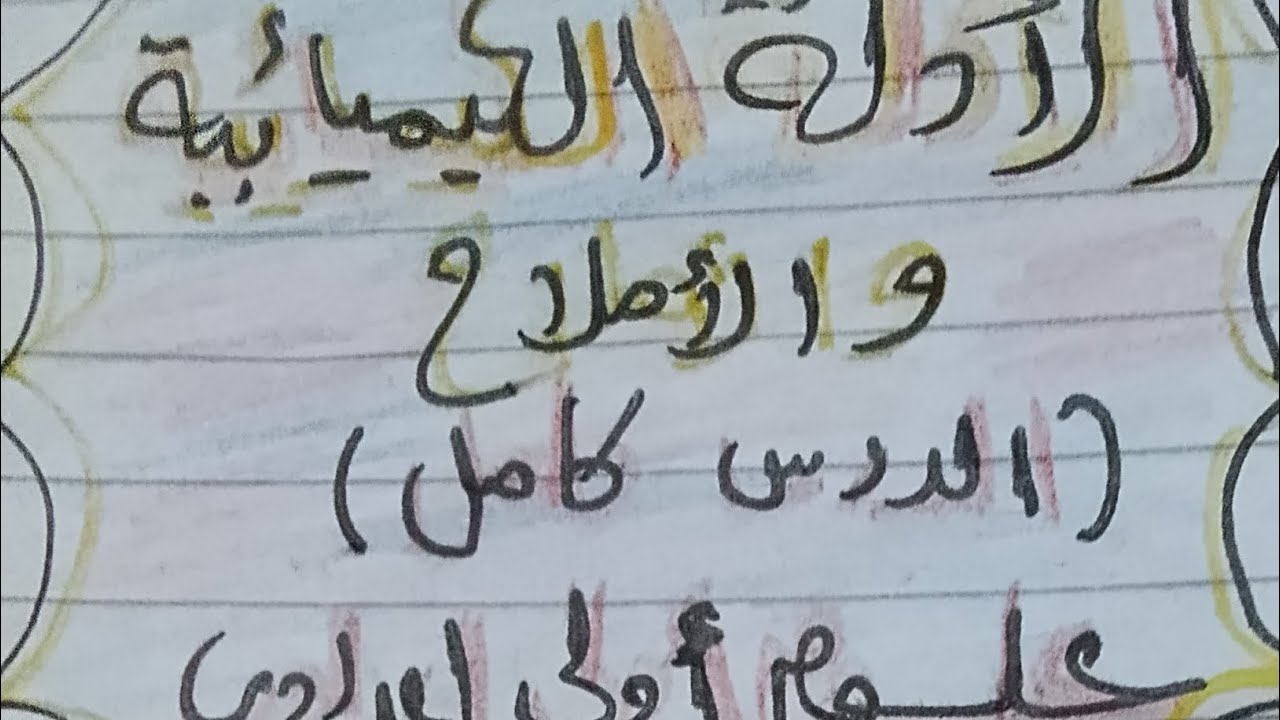 الأدلة الكيميائية
والأملاح
(الدرس كامل)
علوم أولى اعدادى